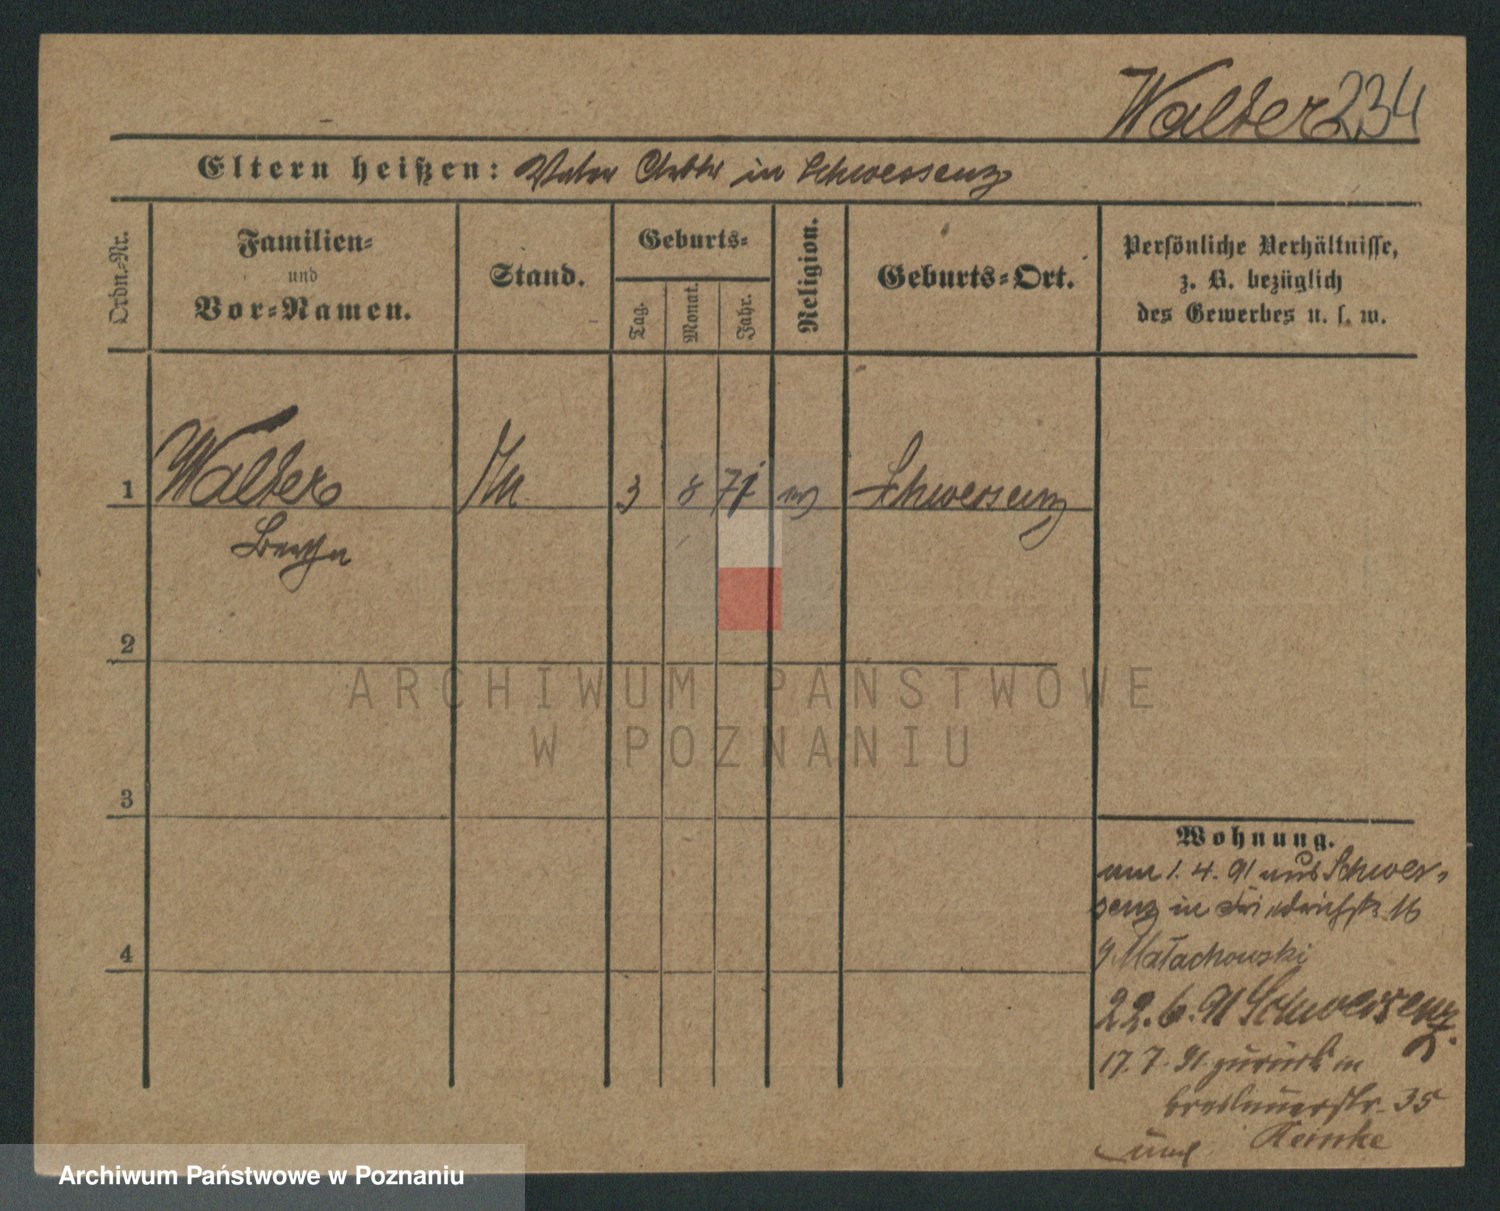 Walter 234
Eltern heißen: Vater in Schwersenz
Ordn.-Nr.
Familien-
und
Vor-Namen.
Stand.
Geburts-
Tag.
Monat.
Jahr.
Religion.
Geburts-Ort.
Persönliche Verhältnisse,
z. B. bezüglich
des Gewerbes u. s. w.
1 Walter 3 8 71 Schwersenz
2
3
4
Wohnung.
am 1. 4. 91 aus Schwer-
senz in Friedrichstr. 16
Małachowski
22. 6. 91 Schwersenz.
17. 7. 91. zurück
Breslauerstr. 35
ARCHIWUM PAŃSTWOWE
W POZNANIU
Archiwum Państwowe w Poznaniu